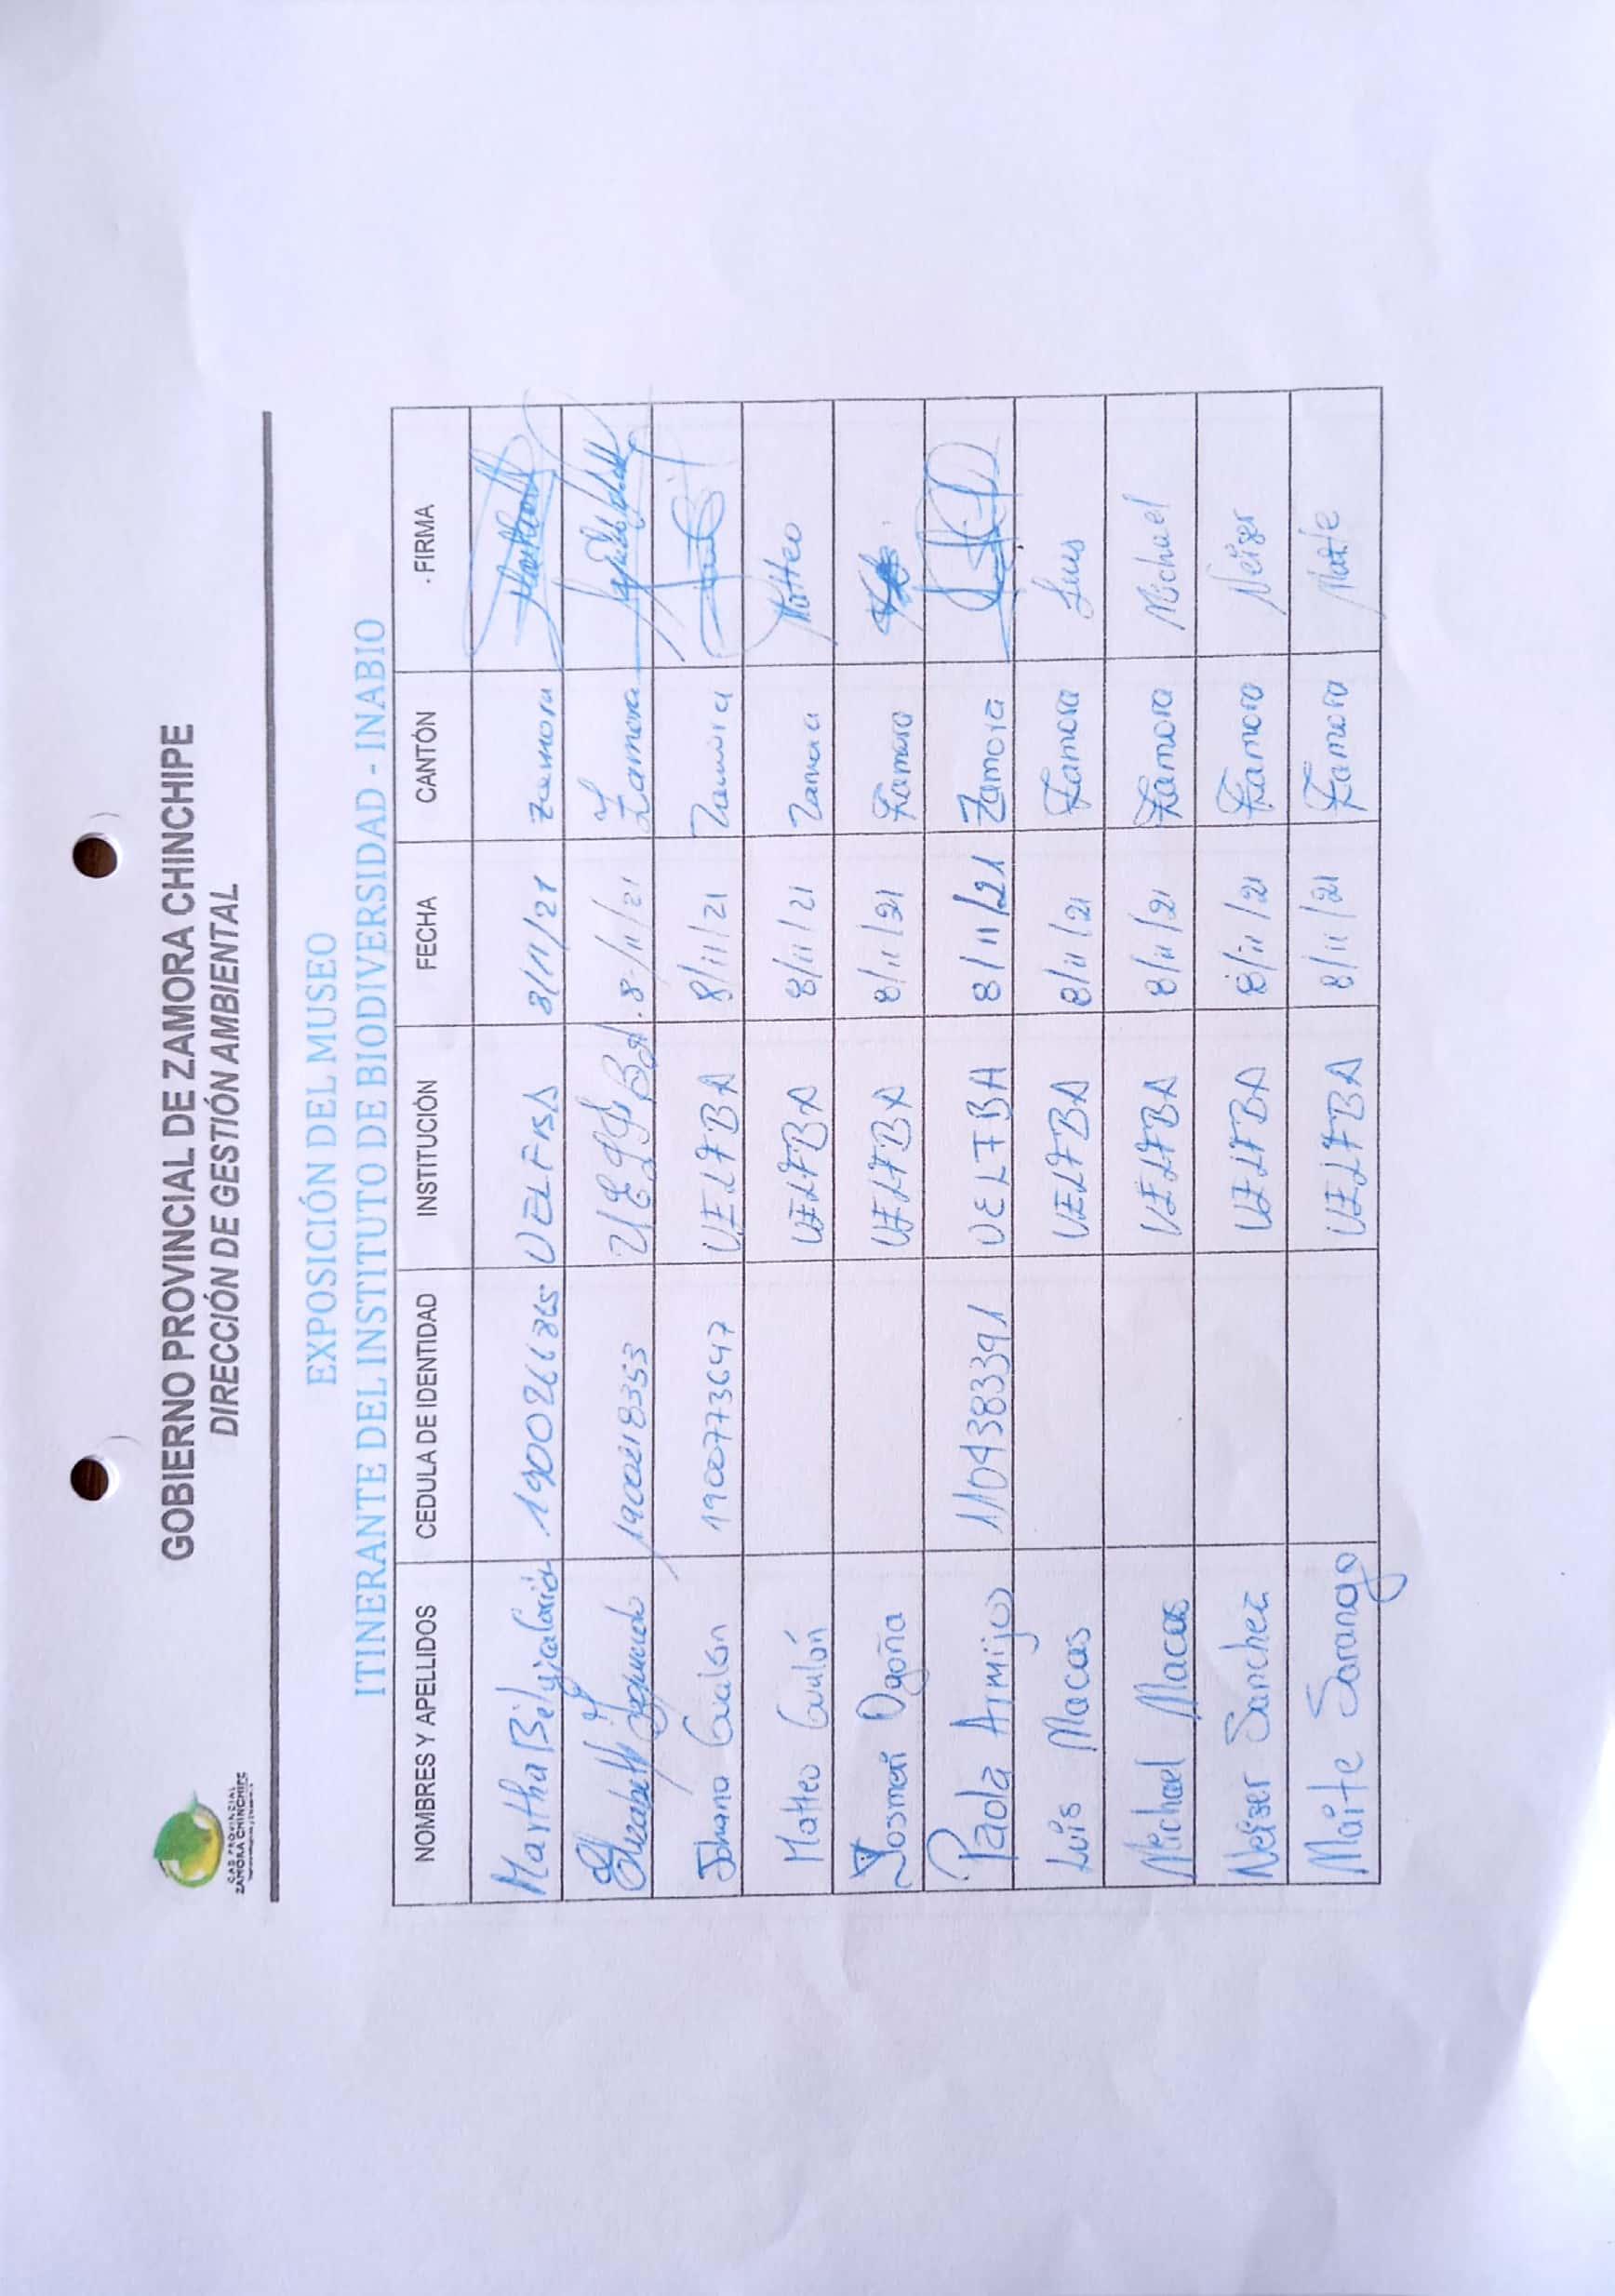 GOBIERNO PROVINCIAL DE ZAMORA CHINCHIPE
DIRECCIÓN DE GESTIÓN AMBIENTAL
GAD PROVINCIAL
ZAMORA CHINCHIPE
EXPOSICIÓN DEL MUSEO
ITINERANTE DEL INSTITUTO DE BIODIVERSIDAD - INABIO
NOMBRES Y APELLIDOS CEDULA DE IDENTIDAD INSTITUCIÓN FECHA CANTÓN FIRMA
Martha 8/11/21 Zamora
1900218353 8/11/21 Zamora
Johana Gualán 1900773647 UELFBA 8/11/21 Zamora
Matteo Gualán UELFBA 8/11/21 Zamora Matteo
Ogoña UELFBA 8/11/21 Zamora
Paola Armijos 1104383391 UELFBA 8/11/21 Zamora
Luis Macas UELFBA 8/11/21 Zamora Luis
Michael Macas UELFBA 8/11/21 Zamora Michael
Neiser Sanchez UELFBA 8/11/21 Zamora Neiser
Maite Sarango UELFBA 8/11/21 Zamora Maite